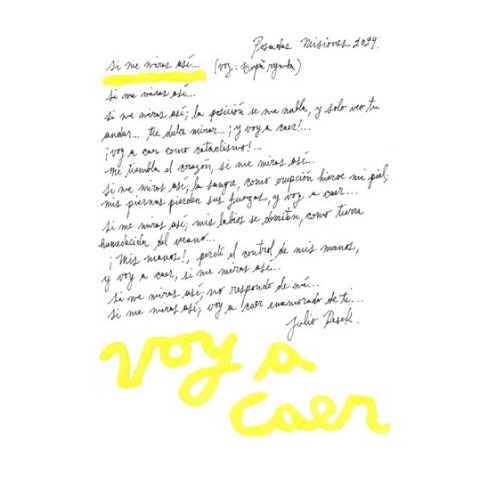 Posadas Misiones 2024.
si me miras así... (voz:
si me miras así...
si me miras así; la posición se me nubla, y solo veo tu
andar... tu dulce mirar...; ¡y voy a caer!...
¡voy a caer como cataclismo!...
me tiembla el corazón, si me miras así..
si me miras así; la sangre, como erupción hierve mi piel;
mis piernas pierden sus fuerzas, y voy a caer...
si me miras así; mis labios se derriten, como tierra
humedecida del verano...
¡Mis manos!, perdí el control de mis manos,
y voy a caer, si me miras así...
si me miras así; no respondo de mí...
si me miras así; voy a caer enamorado de ti...
Julio Pasek.
voy a
caer